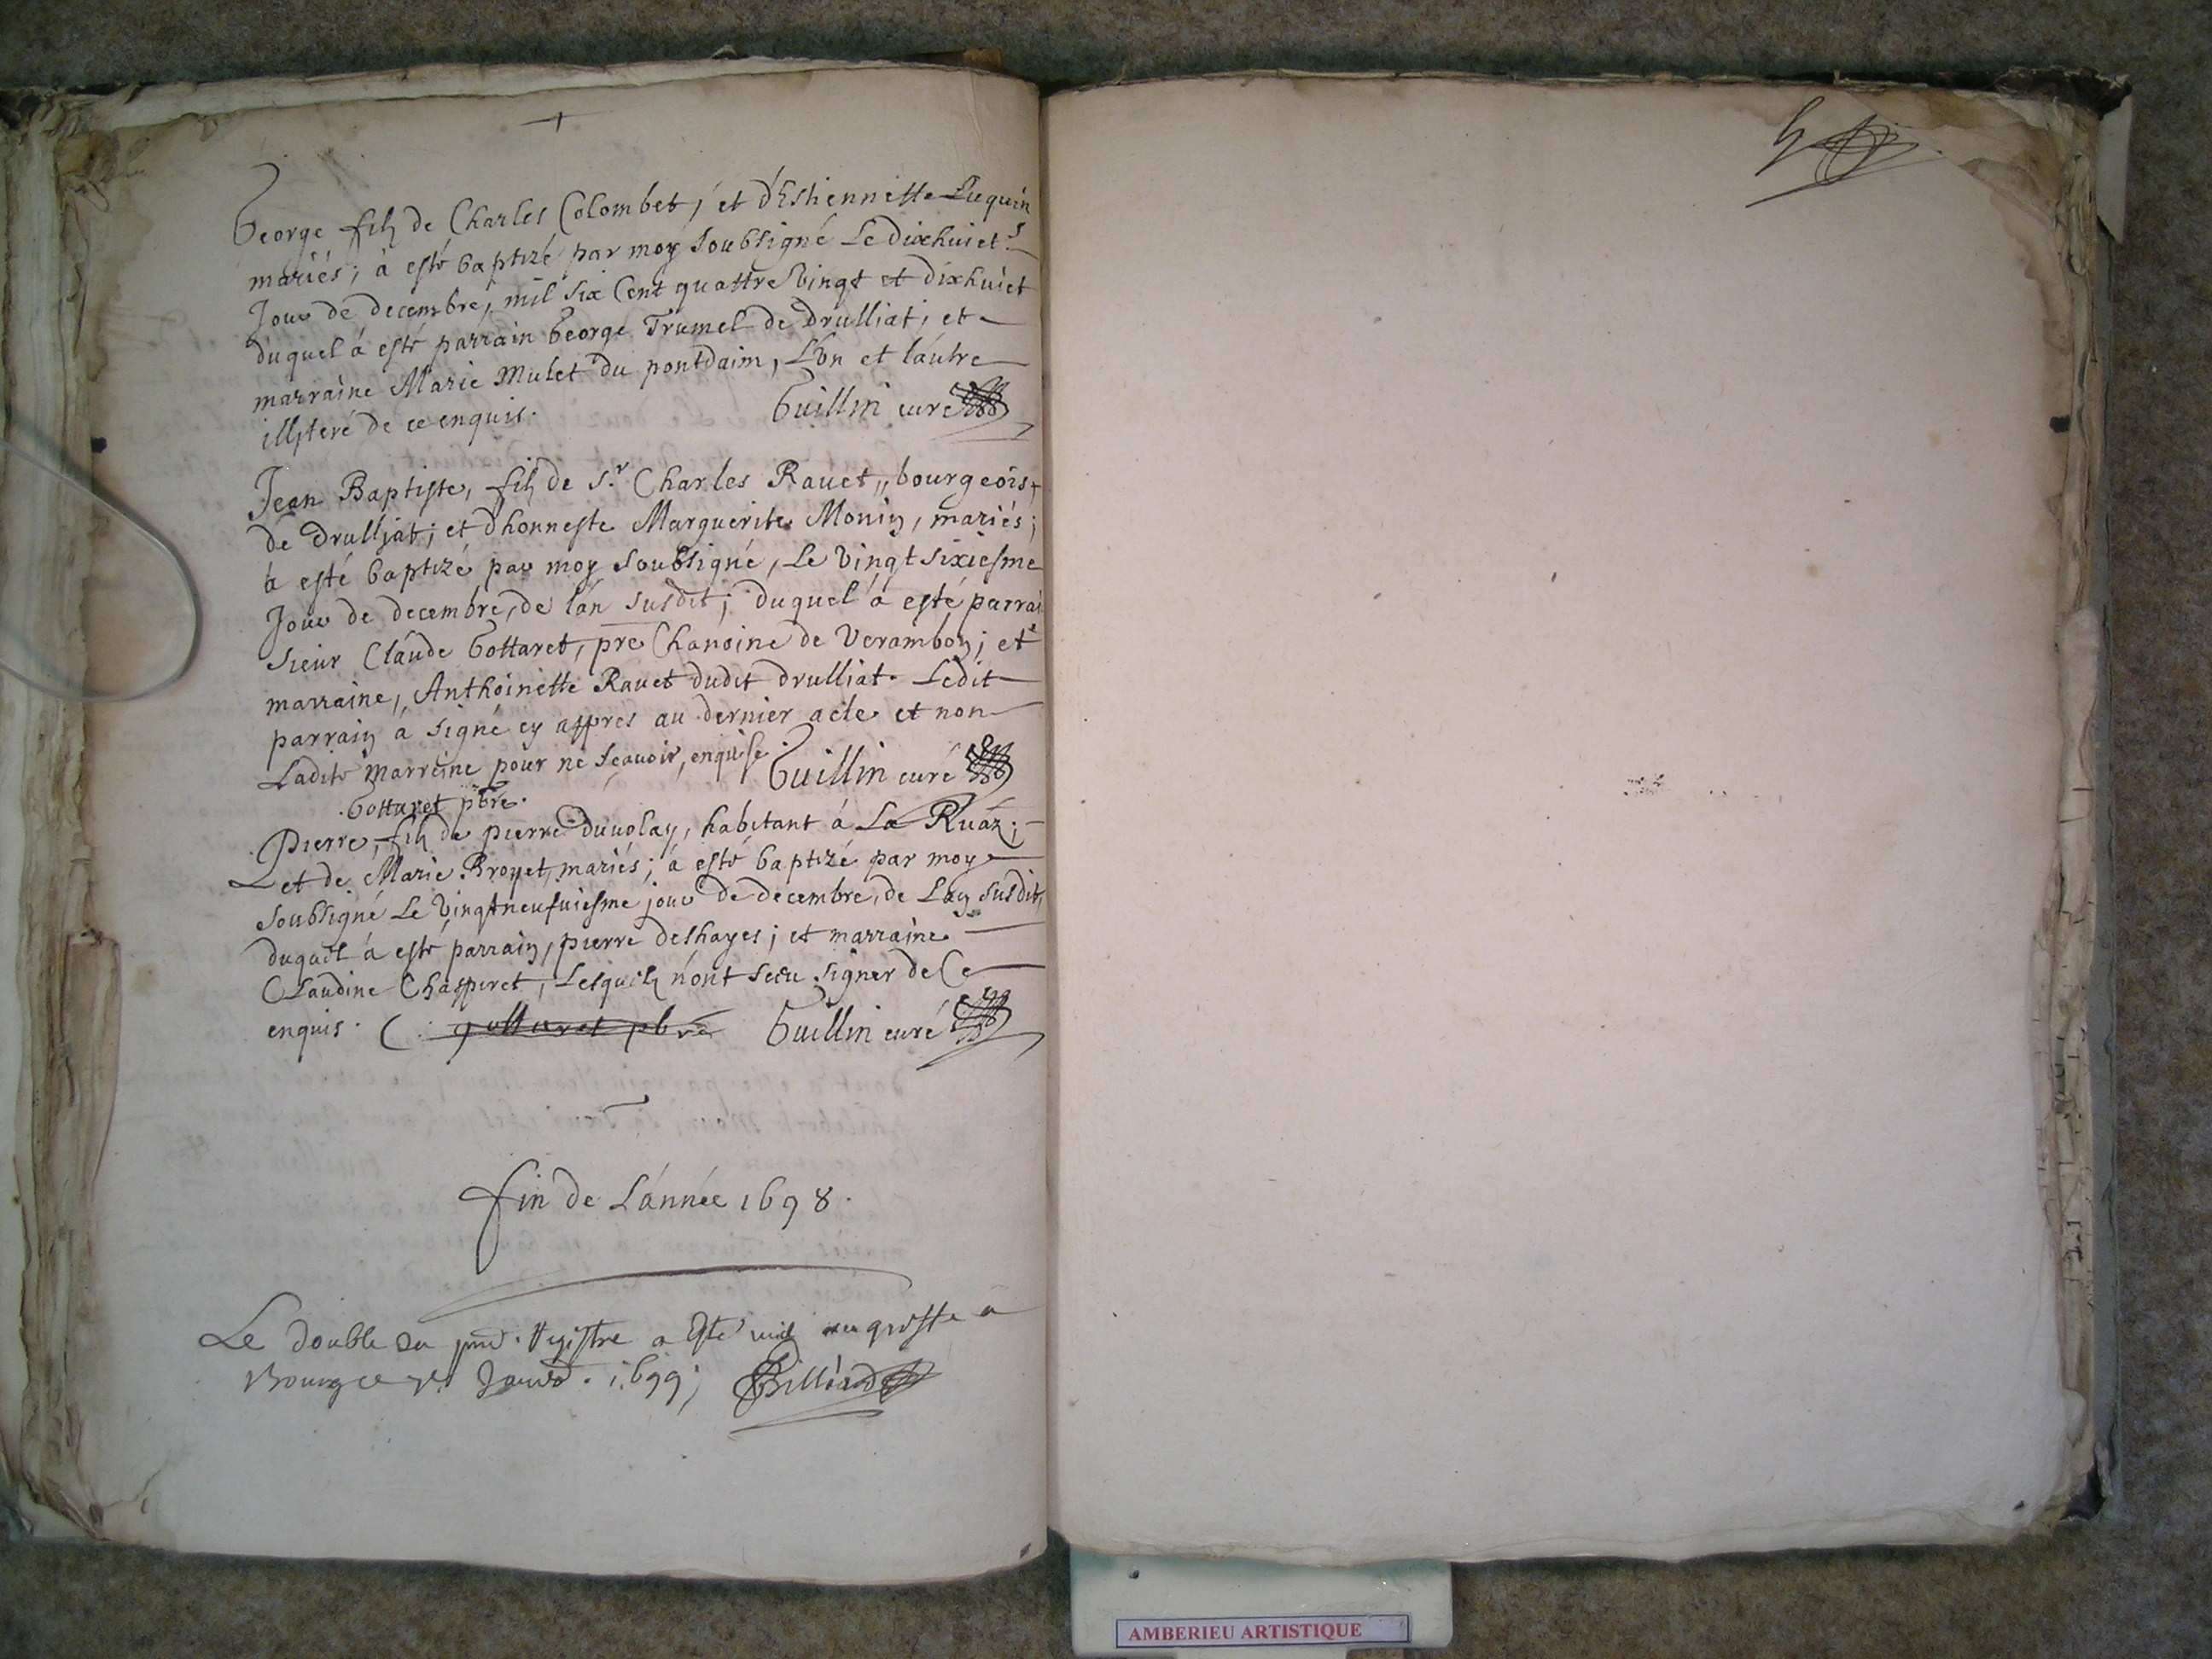 George fils de Charles Colombet, et d'Estiennette Luquin
mariés, à esté baptizé par moy soubsigné Le dixhuict
Jour de decembre, mil six Cent quattre vingt et dixhuict
duquel à esté parrain George Trumel de Drulliat, et
marraine Marie Mulet du pontdaim, L'un et láutre
illiteré de ce enquis. Guillin curé
Jean Baptiste, fils de Sr Charles Ravet, bourgeois
de Drulliat; et d'honneste Marguerite Monin, mariés;
à esté baptizé par moy soubsigné, Le vingtsixiesme
Jour de decembre, de lán susdit; duquel à esté parrai
Sieur Claude Gottaret, pre Chanoine de Varambon; et
marraine, Anthoinette Ravet dudit drulliat. Ledit
parrain à signé cy appres au dernier acte et non
Ladite marreine pour ne scavoir, enquise Guillin curé
Gottaret pbre.
Pierre, fils de pierre duvolay, habitant à La Ruáz;
et de Marie Broyet, mariés; à esté baptizé par moy
soubsigné Le vingtneufviesme jour de decembre, de Lan susdit,
duquel à esté parrain, pierre deshayes; et marraine
Claudine Chapperet, Lesquels n'ont sceu signer de Ce
enquis. gottaret pbre Guillin curé
fin de Lánnée 1698.
Le double du pnt. Registre a esté mis au greffe a
Bourg ce Janv. 1699; Billiard
AMBERIEU ARTISTIQUE